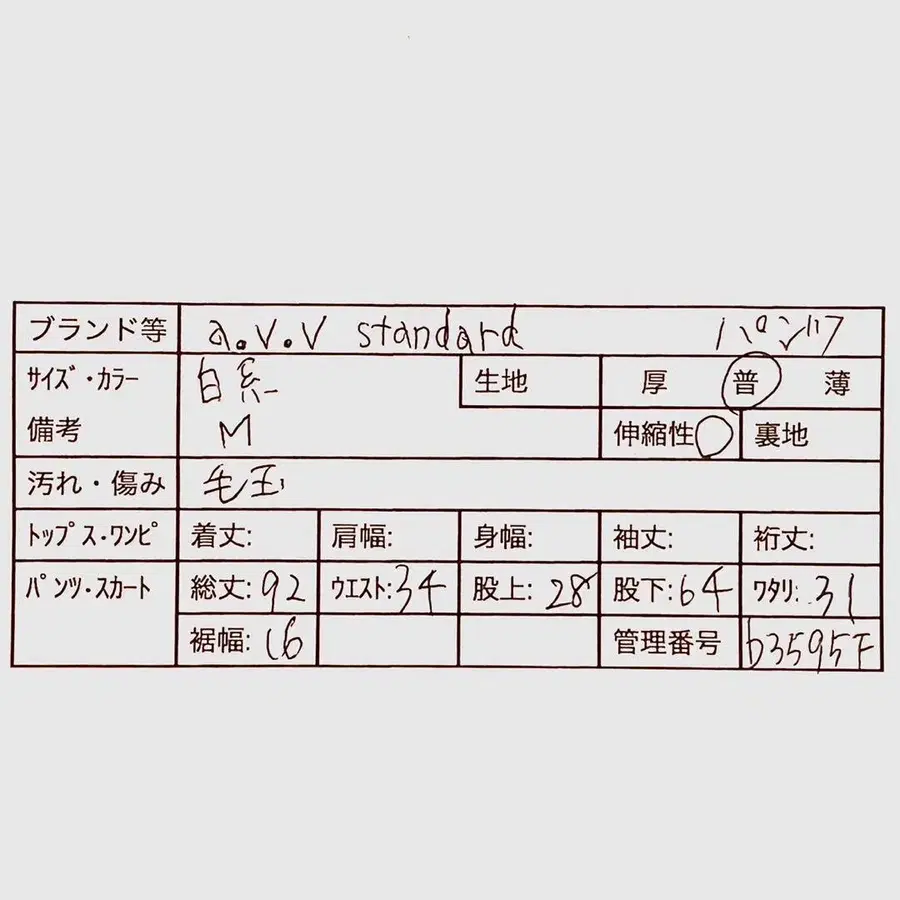 ブランド等 a.v.v standard パンツ
サイズ・カラー 白系 生地 厚 普 薄
備考 M 伸縮性 ○ 裏地
汚れ・傷み 毛玉
トップス・ワンピ 着丈: 肩幅: 身幅: 袖丈: 裄丈:
パンツ・スカート 総丈:92 ウエスト:34 股上:28 股下:64 ワタリ:31
裾幅:16 管理番号 b3595F